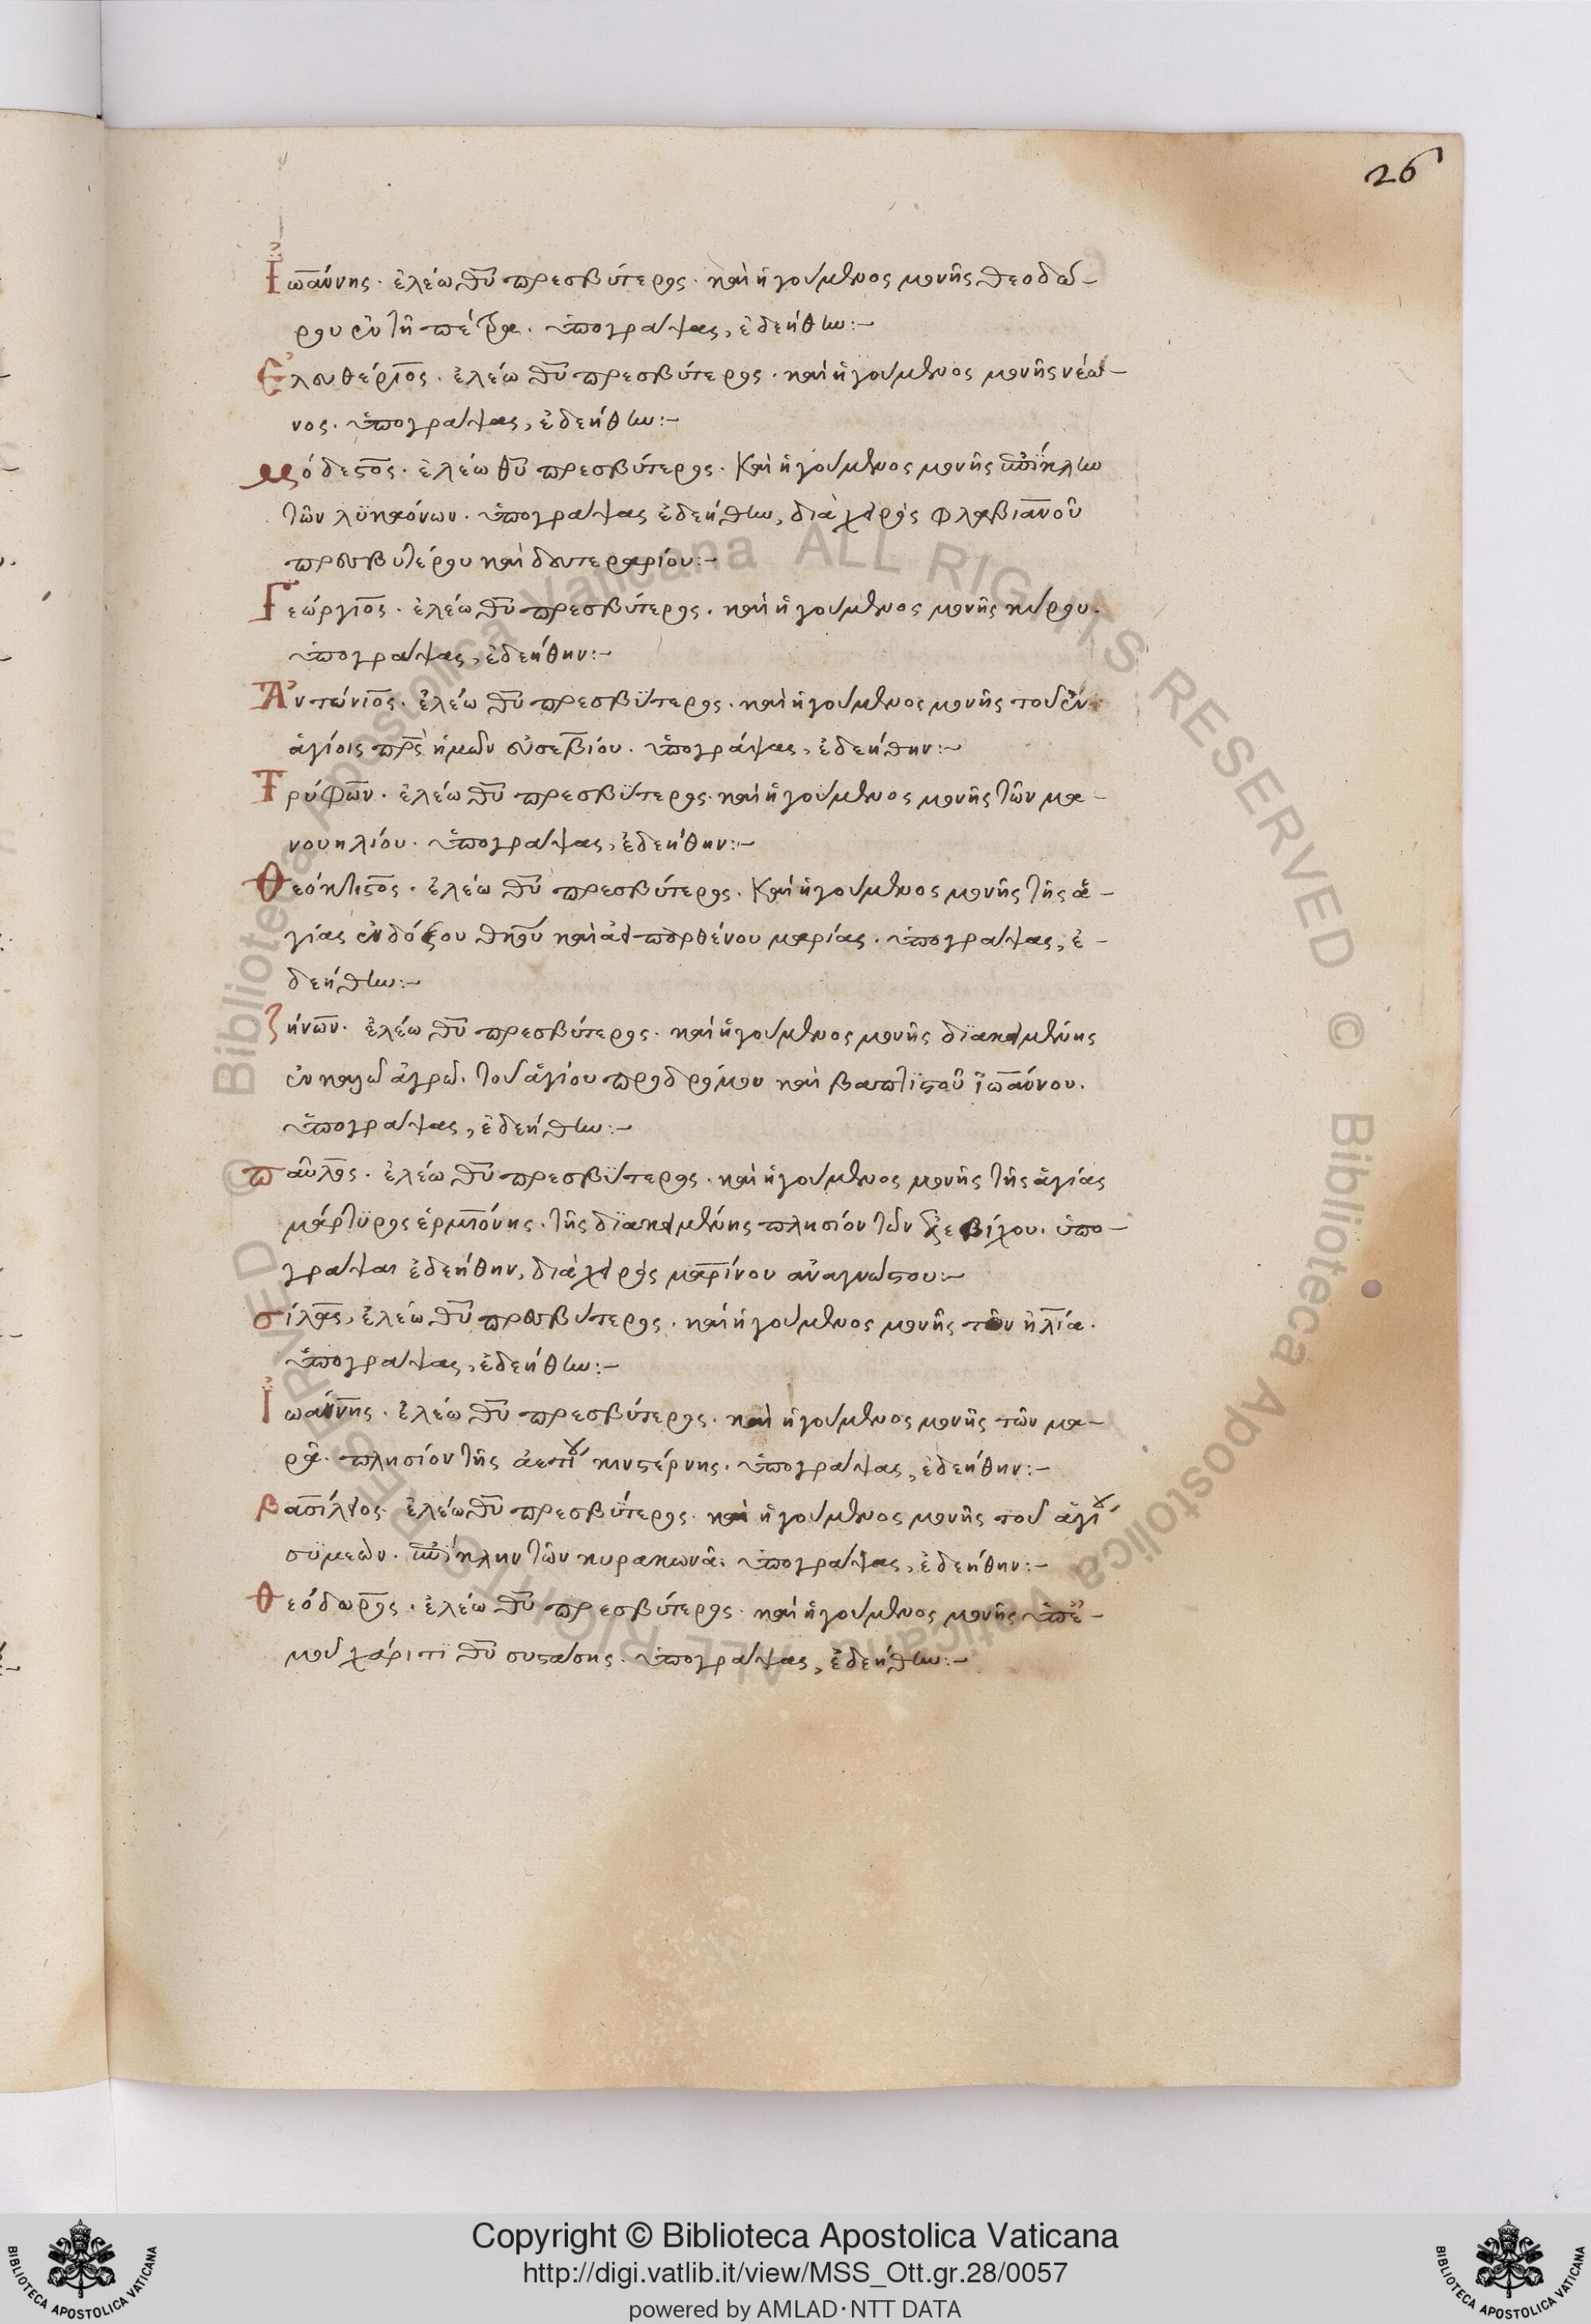 26
Ἰωάννης· ἐλέω θῦ πρεσβύτερος· καὶ ἡγούμενος μονῆς θεοδώ-
ρου ἐν τῆ πέτρα· ὑπογράψας, ἐδεήθην:-
Ἐλευθέριος· ἐλέω θῦ πρεσβύτερος· καὶ ἡγούμενος μονῆς νέω-
νος· ὑπογράψας, ἐδεήθην:-
Μόδεστος· ἐλέω θῦ πρεσβύτερος· καὶ ἡγούμενος μονῆς ἐπίκλην
τῶν λϋκαόνων· ὑπογράψας ἐδεήθην, διὰ χειρὸς φλαβιανοῦ
πρεσβυτέρου καὶ δευτεραρίου:-
Γεώργιος· ἐλέω θῦ πρεσβύτερος· καὶ ἡγούμενος μονῆς κύρου·
ὑπογράψας, ἐδεήθην:-
Ἀντώνιος· ἐλέω θῦ πρεσβύτερος· καὶ ἡγούμενος μονῆς τοῦ ἐν
ἁγίοις πρς ἡμῶν εὐσεβίου· ὑπογράψας, ἐδεήθην:-
Τρύφων· ἐλέω θῦ πρεσβύτερος· καὶ ἡγούμενος μονῆς τῶν μα-
νουηλίου· ὑπογράψας, ἐδεήθην:-
Θεόκτιστος· ἐλέω θῦ πρεσβύτερος· καὶ ἡγούμενος μονῆς τῆς ἁ-
γίας ἐνδόξου θκου καὶ ἀειπαρθένου μαρίας· ὑπογράψας, ἐ-
δεήθην:-
Ζήνων· ἐλέω θῦ πρεσβύτερος· καὶ ἡγούμενος μονῆς διακειμένης
ἐν καλῶ ἀγρῶ· τοῦ ἁγίου προδρόμου καὶ βαπτιστοῦ ἰωάννου·
ὑπογράψας, ἐδεήθην:-
Παῦλος· ἐλέω θῦ πρεσβύτερος· καὶ ἡγούμενος μονῆς τῆς ἁγίας
μάρτϋρος ἑρμιόνης· τῆς διακειμένης πλησίον τῶν ζεβίχου· ὑπο-
γράψαι ἐδεήθην, διὰ χειρὸς μαρίνου ἀναγνώστου:-
Σίλας, ἐλέω θῦ πρεσβύτερος· καὶ ἡγούμενος μονῆς τῶν ἠλία·
ὑπογράψας, ἐδεήθην:-
Ἰωάννης· ἐλέω θῦ πρεσβύτερος· καὶ ἡγούμενος μονῆς τῶν μα-
ρᾶ· πλησίον τῆς ἀετίου κινστέρνης· ὑπογράψας, ἐδεήθην:-
Βασίλειος· ἐλέω θῦ πρεσβύτερος· καὶ ἡγούμενος μονῆς τοῦ ἁγίου
σϋμεὼν· ἐπίκλην τῶν κυρακωνᾶ· ὑπογράψας, ἐδεήθην:-
Θεόδωρος· ἐλέω θῦ πρεσβύτερος· καὶ ἡγούμενος μονῆς ὑπ' ἐ-
μοῦ χάριτι θῦ συστάσης· ὑπογράψας, ἐδεήθην:-
© Biblioteca Apostolica Vaticana ALL RIGHTS RESERVED © Biblioteca Apostolica Vaticana ALL RIGHTS RESERVED
Copyright © Biblioteca Apostolica Vaticana
http://digi.vatlib.it/view/MSS_Ott.gr.28/0057
powered by AMLAD·NTT DATA
BIBLIOTECA APOSTOLICA VATICANA
BIBLIOTECA APOSTOLICA VATICANA